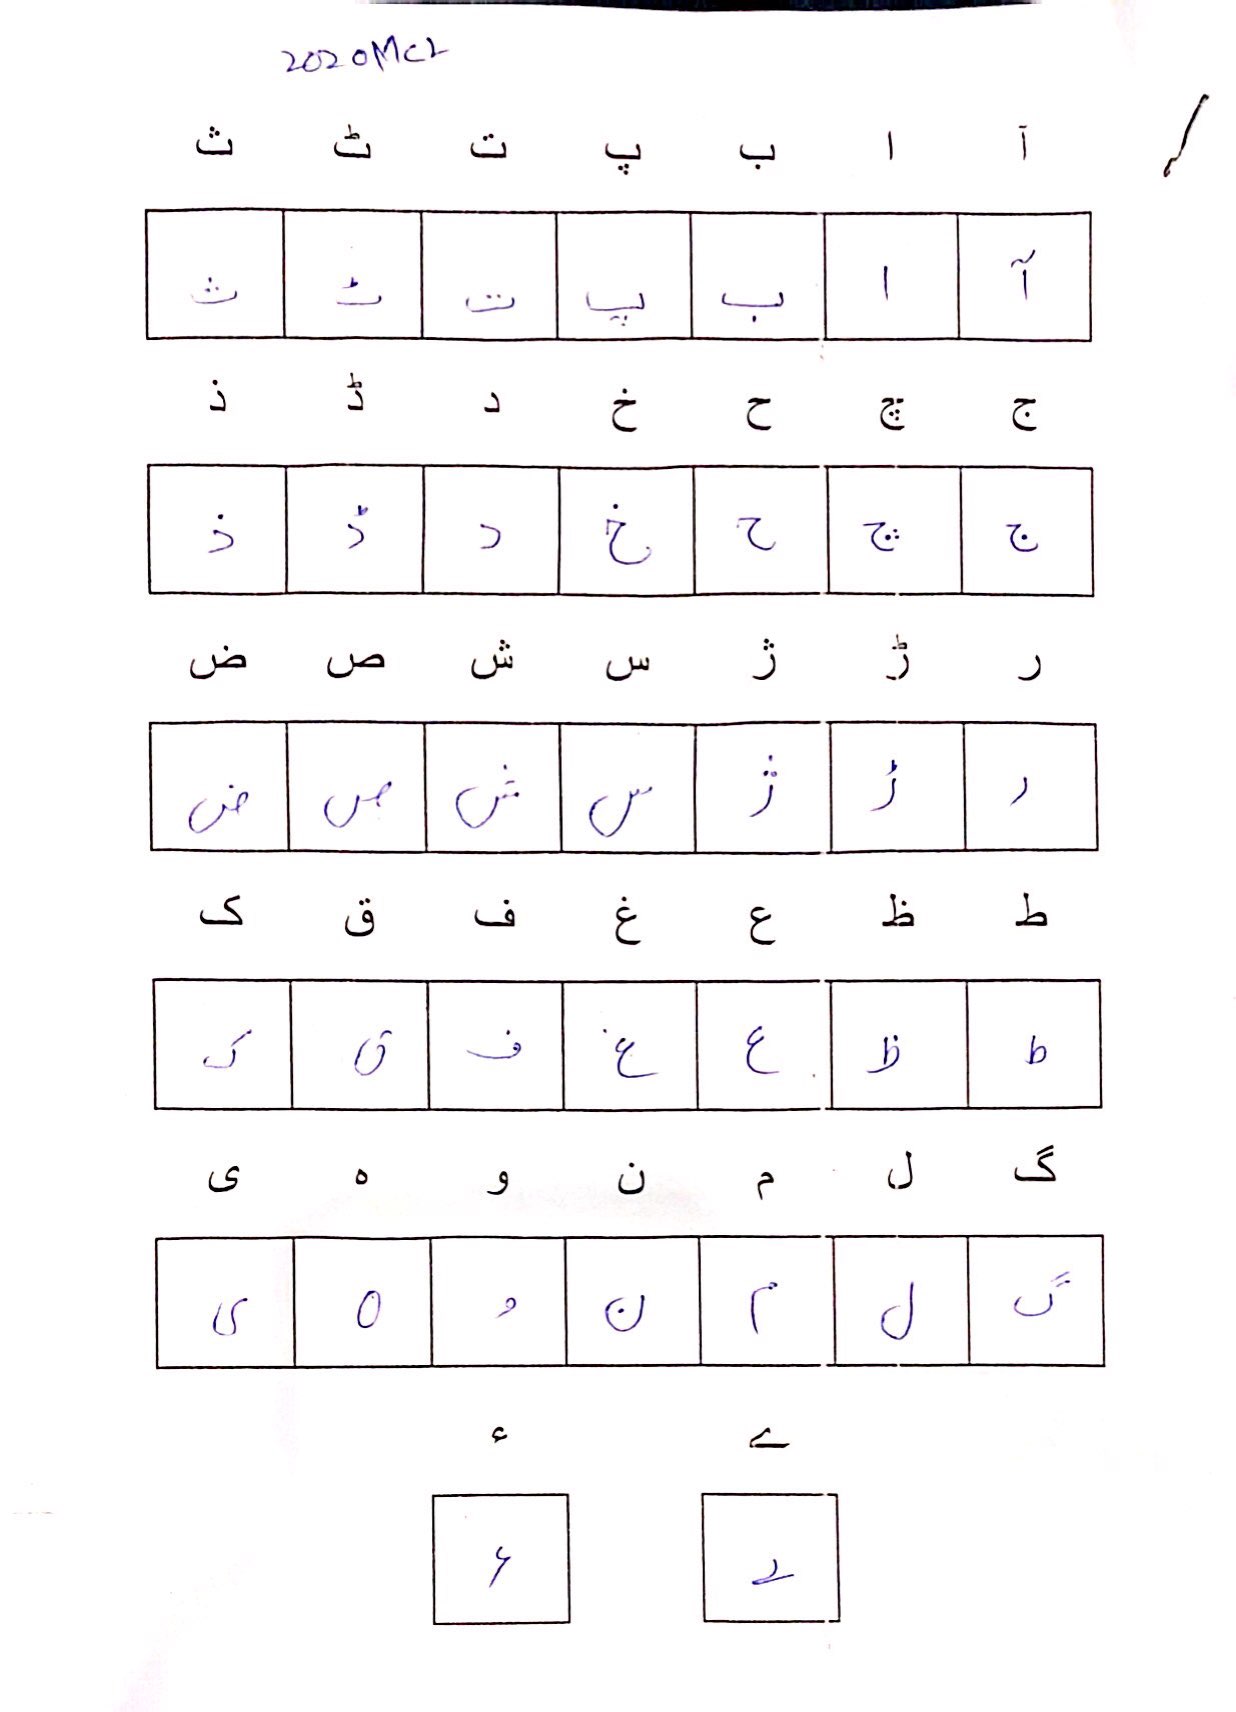 2020MC2
آ ا ب پ ت ٹ ث
آ ا ب پ ت ٹ ث
ج چ ح خ د ڈ ذ
ج چ ح خ د ڈ ذ
ر ڑ ژ س ش ص ض
ر ڑ ژ س ش ص ض
ط ظ ع غ ف ق ک
ط ظ ع غ ف ق ک
گ ل م ن و ہ ی
گ ل م ن و ہ ی
ے ء
ے ء